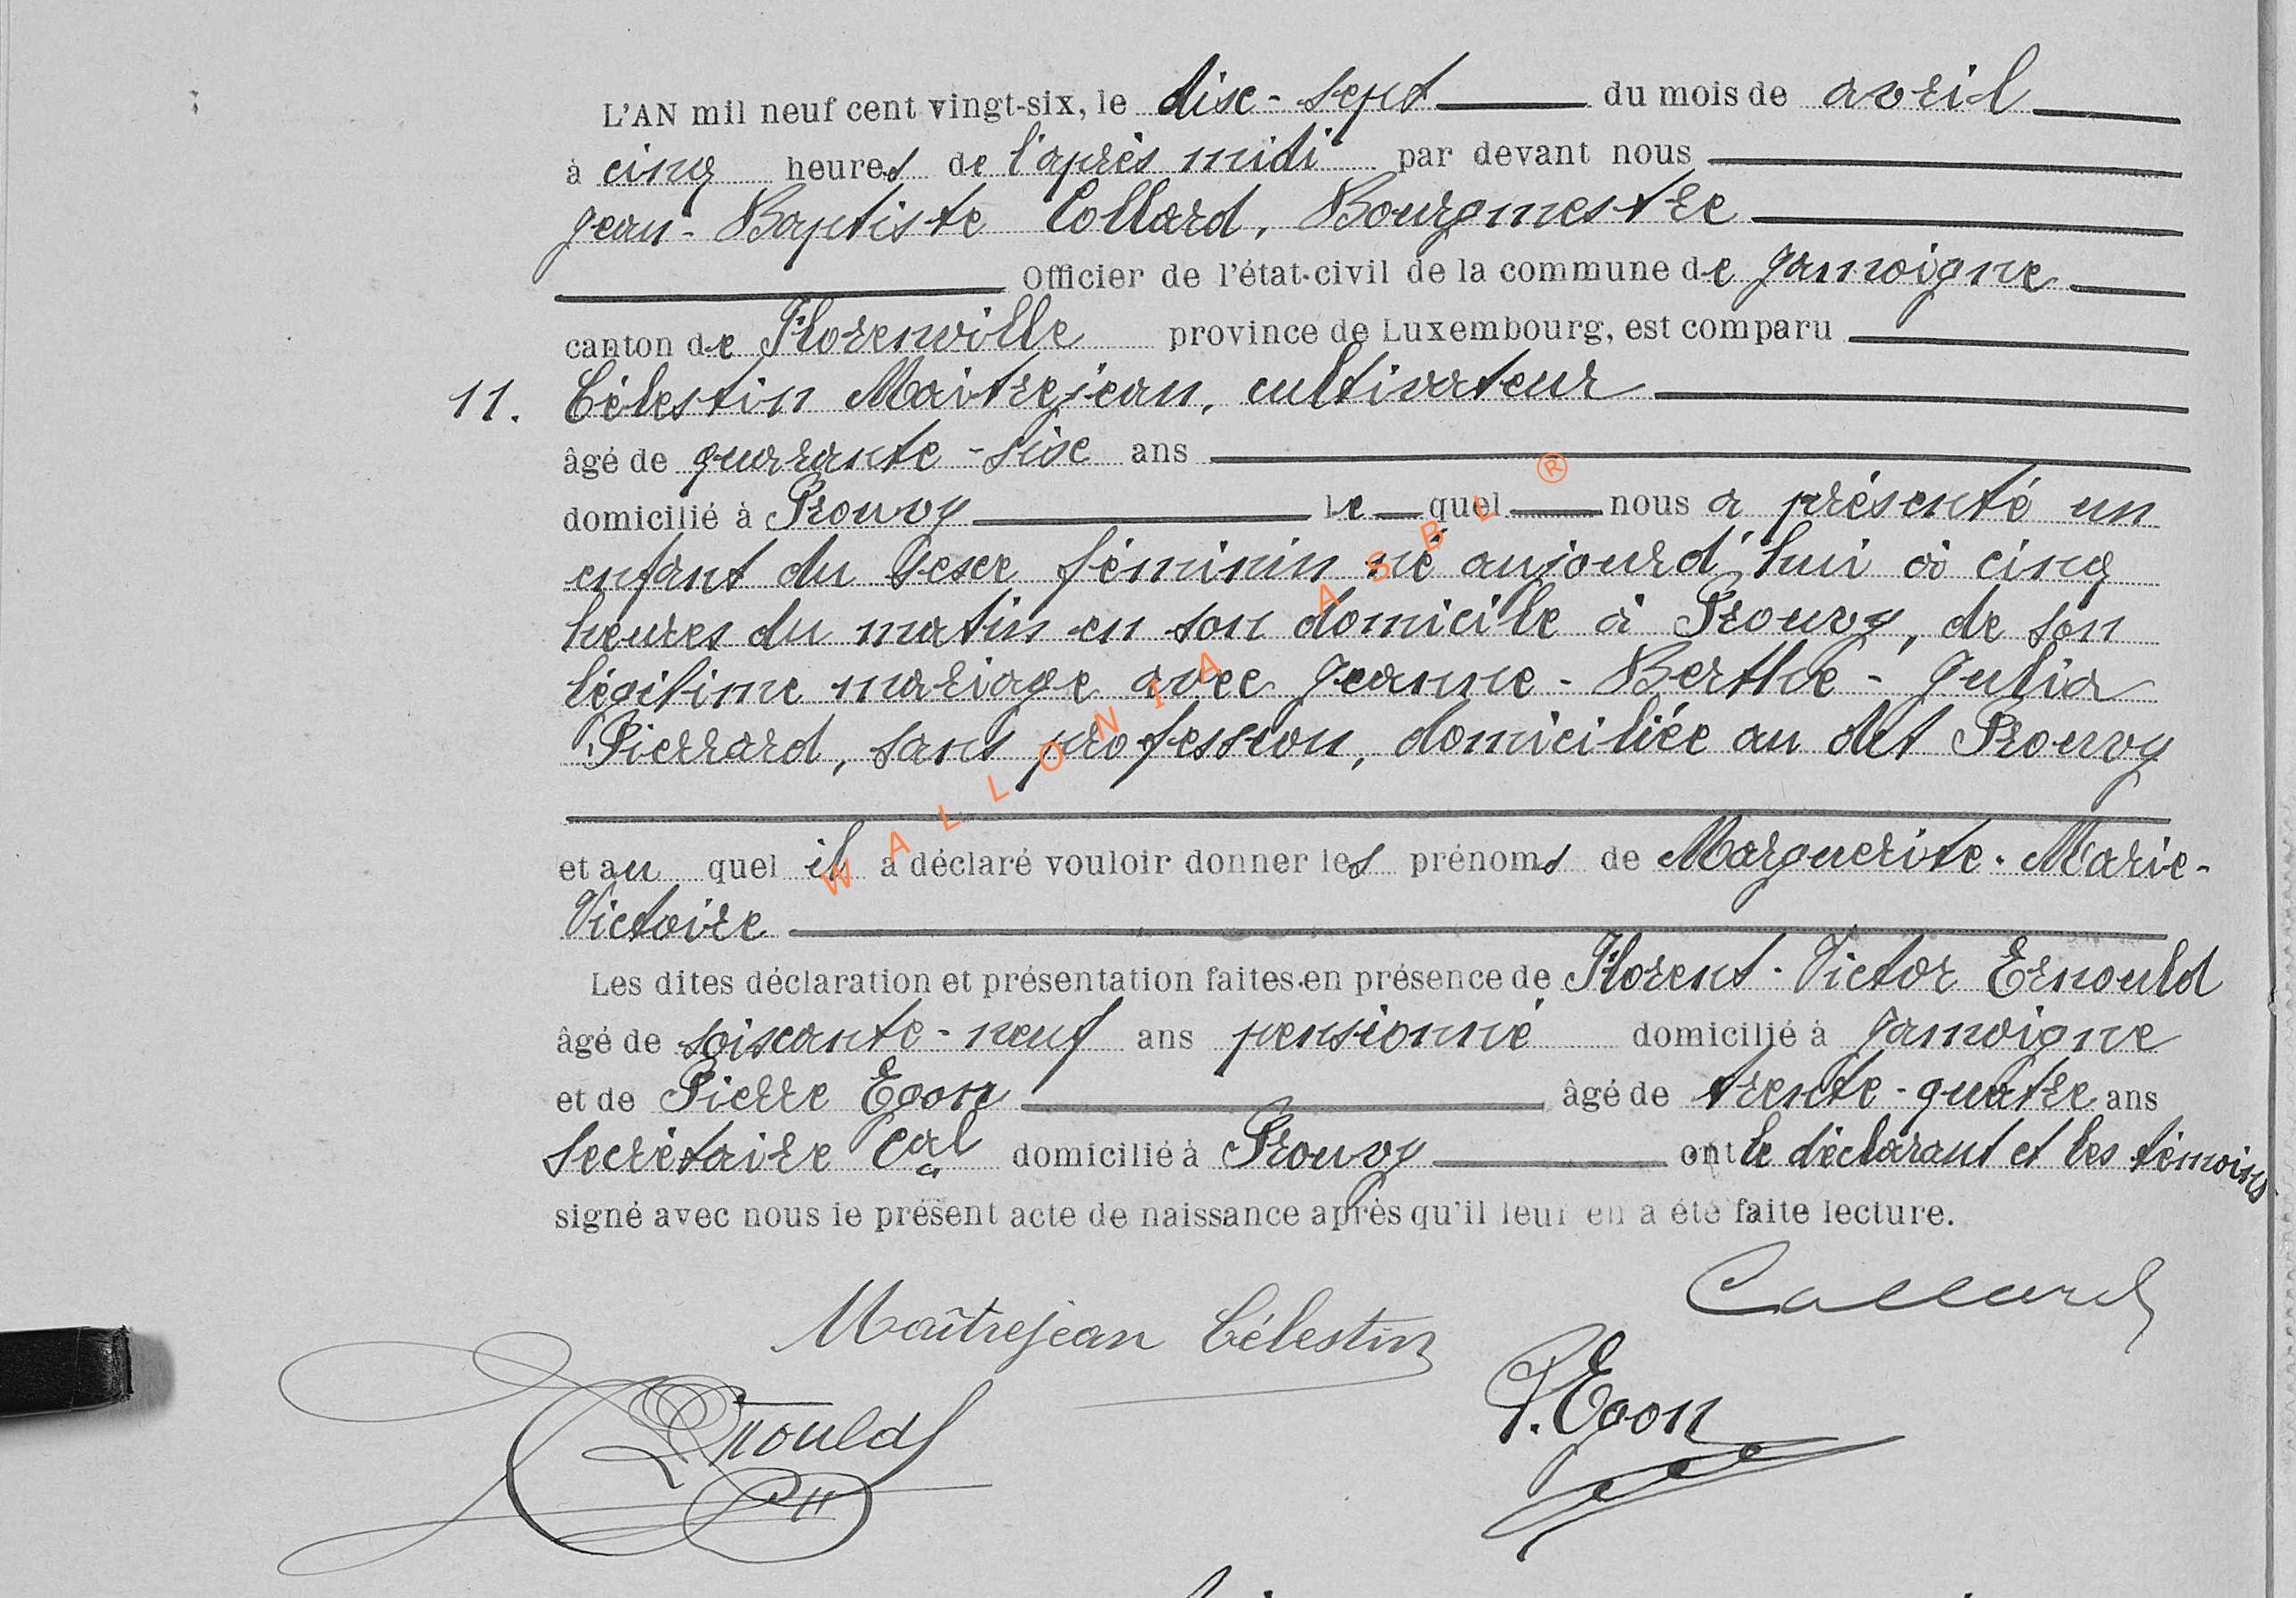 L'AN mil neuf cent vingt-six, le dix-sept du mois de avril
à cinq heures de l'après midi par devant nous
Jean-Baptiste Collard, Bourgmestre
Officier de l'état-civil de la commune de Jamoigne
canton de Florenville province de Luxembourg, est comparu
11. Célestin Maitrejean, cultivateur
âgé de quarante-six ans
domicilié à Prouvy le quel nous a présenté un
enfant du sexe féminin né aujourd'hui à cinq
heures du matin en son domicile à Prouvy, de son
légitime mariage avec Jeanne-Berthe-Julia
Pierrard, sans profession, domiciliée au dit Prouvy
et au quel il a déclaré vouloir donner les prénoms de Marguerite-Marie-
Victoire
Les dites déclaration et présentation faites en présence de Florent-Victor Ernould
âgé de soixante-neuf ans pensionné domicilié à Jamoigne
et de Pierre Egon âgé de trente-quatre ans
secrétaire cal domicilié à Prouvy ont le déclarant et les témoins
signé avec nous le présent acte de naissance après qu'il leur en a été faite lecture.
Collard
Maîtrejean Célestin
P. Egon
Ernould
WALLONIA ASBL ®